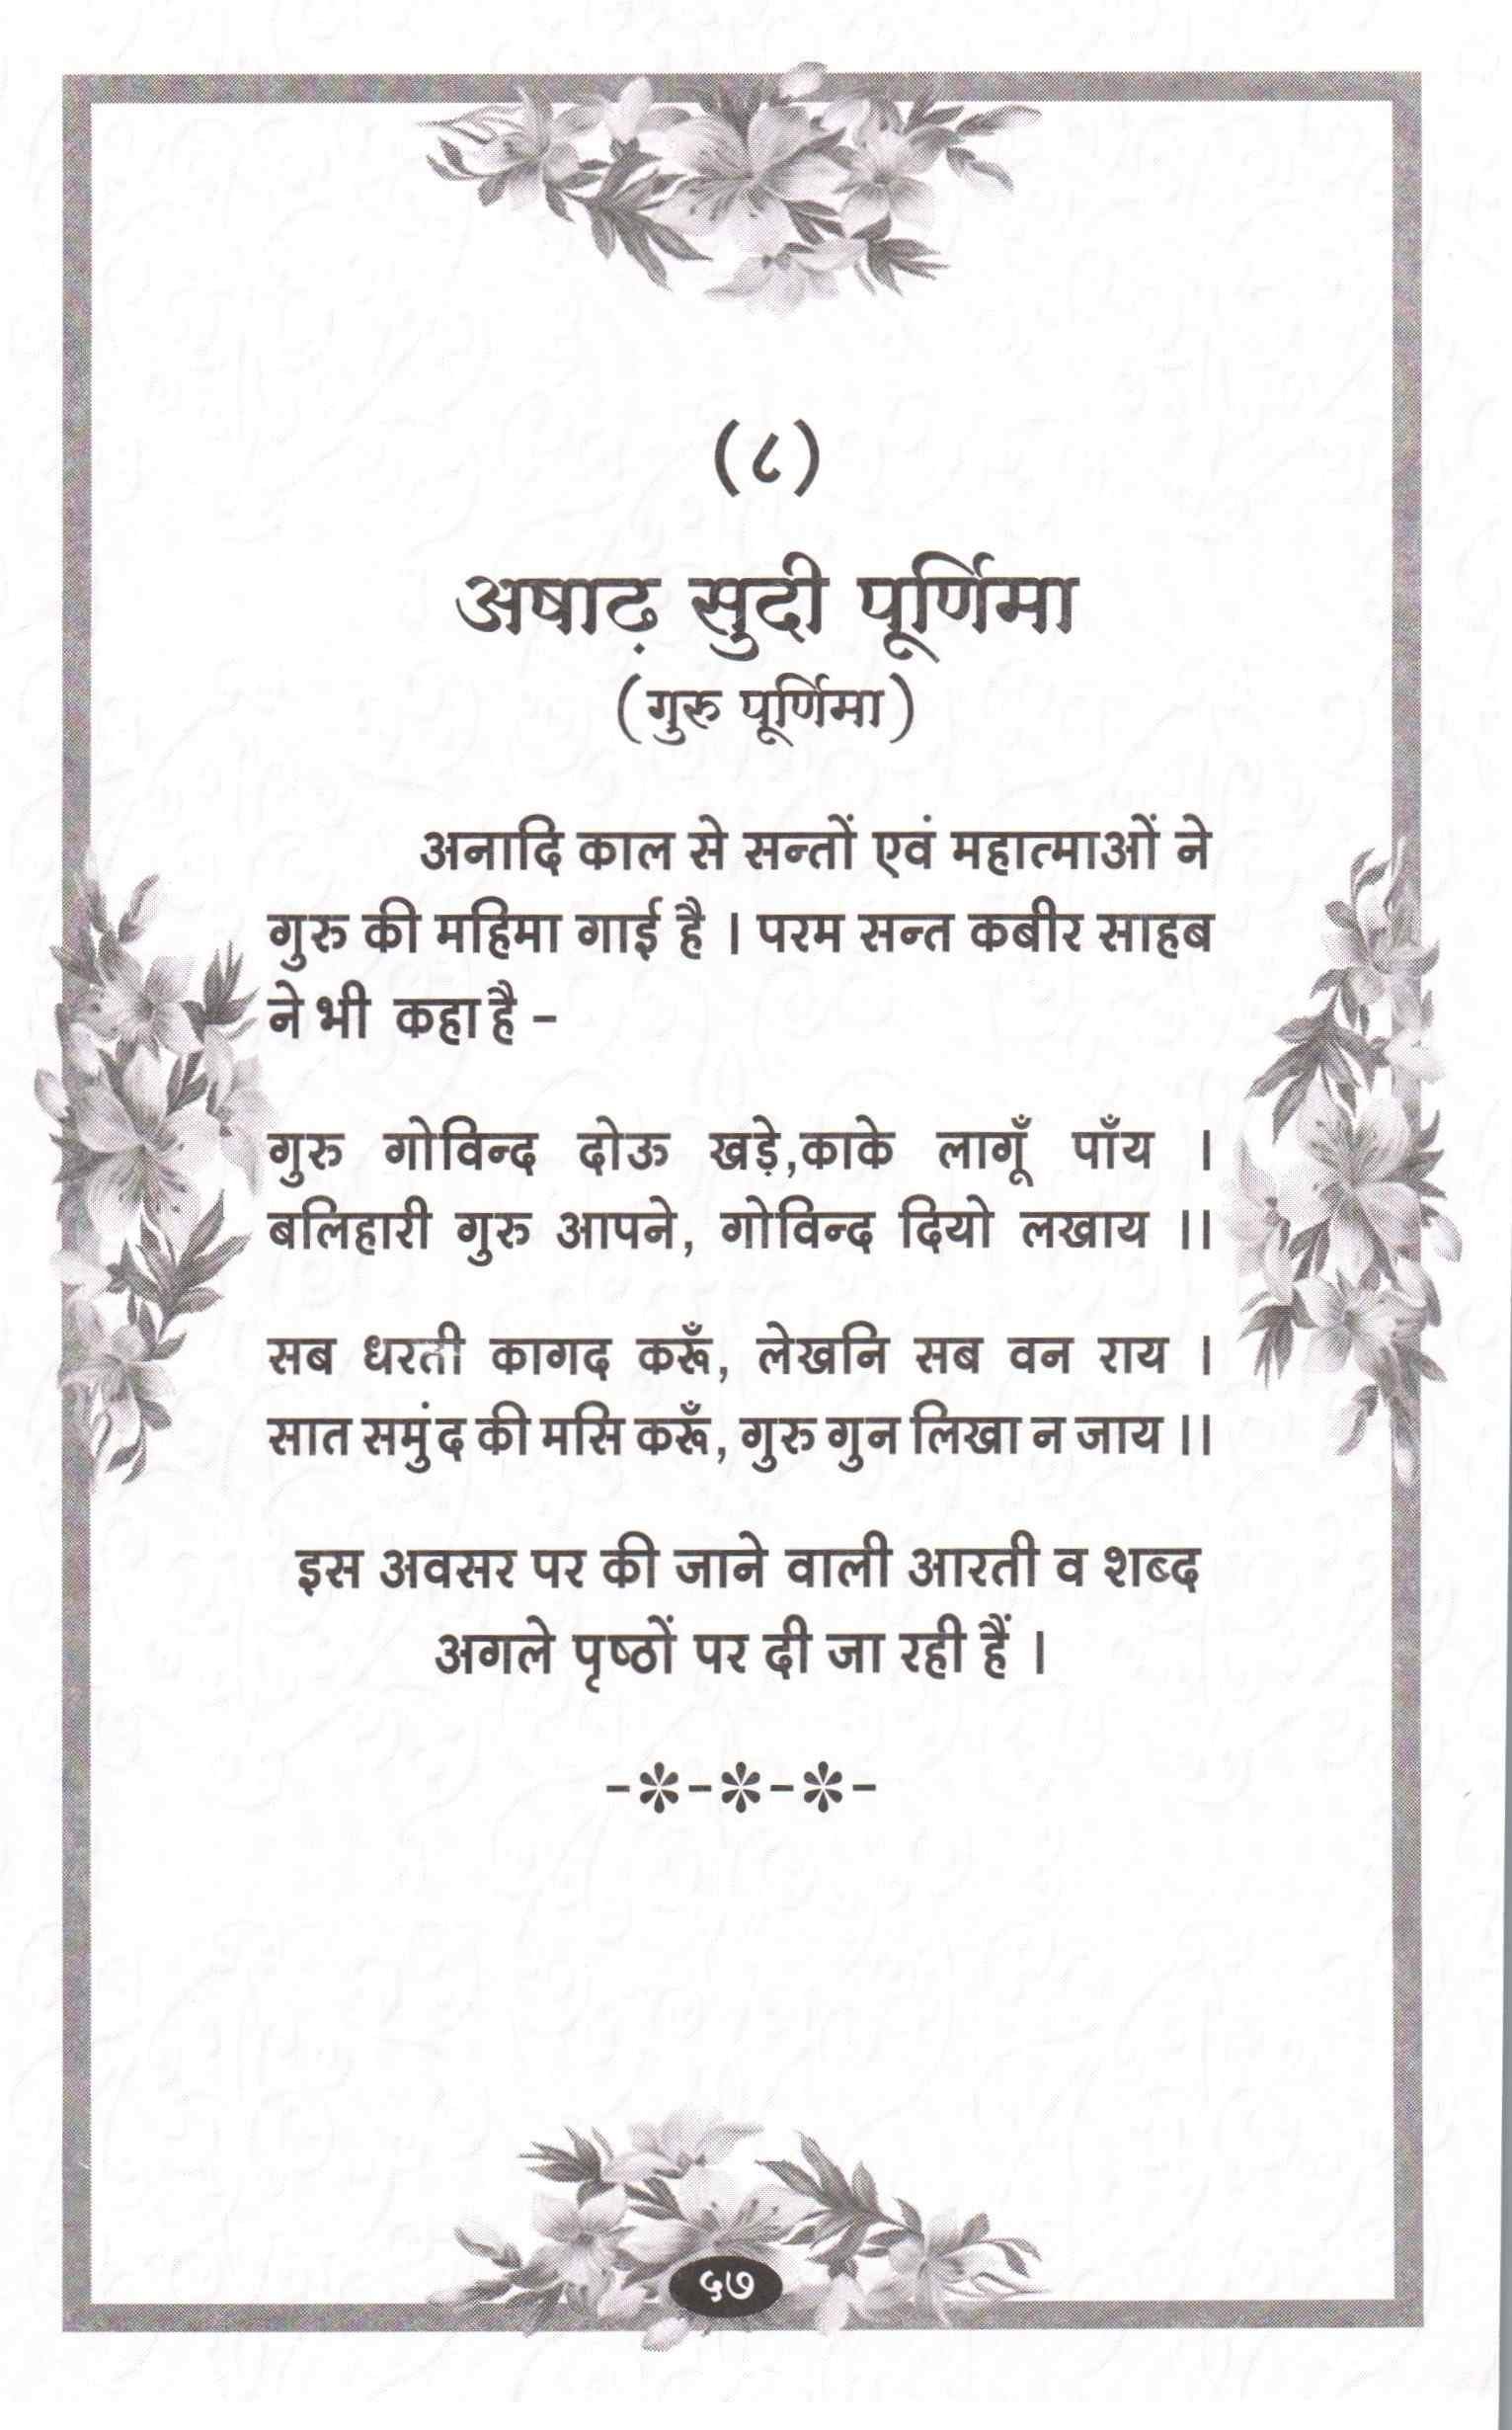 (८)
अषाढ़ सुदी पूर्णिमा
(गुरु पूर्णिमा)
अनादि काल से सन्तों एवं महात्माओं ने
गुरु की महिमा गाई है । परम सन्त कबीर साहब
ने भी कहा है -
गुरु गोविन्द दोऊ खड़े,काके लागूँ पाँय ।
बलिहारी गुरु आपने, गोविन्द दियो लखाय ।।
सब धरती कागद करूँ, लेखनि सब वन राय ।
सात समुंद की मसि करूँ, गुरु गुन लिखा न जाय ।।
इस अवसर पर की जाने वाली आरती व शब्द
अगले पृष्ठों पर दी जा रही हैं ।
-*-*-*-
५७